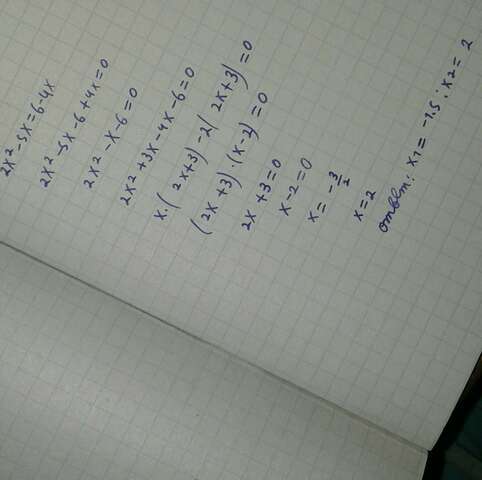 2x² - 5x = 6 - 4x
2x² - 5x - 6 + 4x = 0
2x² - x - 6 = 0
2x² + 3x - 4x - 6 = 0
x·(2x+3) - 2(2x+3) = 0
(2x+3)·(x-2) = 0
2x + 3 = 0
x - 2 = 0
x = -3/2
x = 2
ответ: x1 = -1.5; x2 = 2